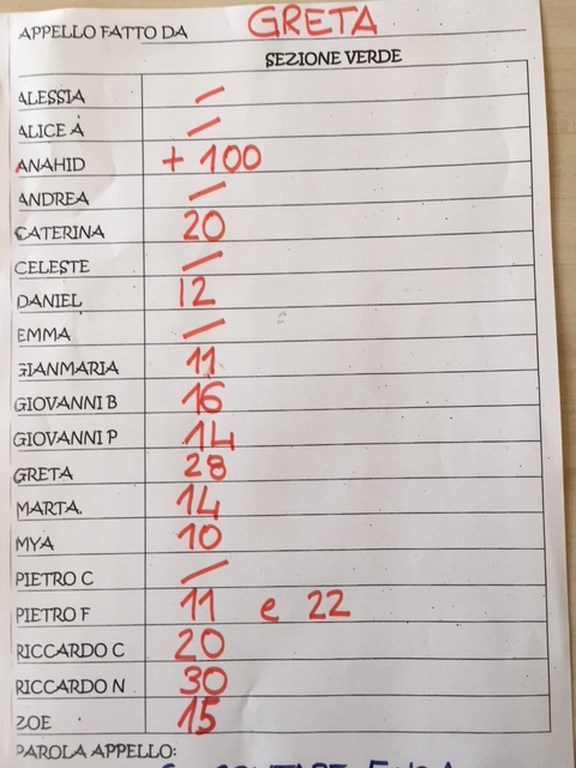 APPELLO FATTO DA GRETA
SEZIONE VERDE
ALESSIA /
ALICE A /
ANAHID + 100
ANDREA /
CATERINA 20
CELESTE /
DANIEL 12
EMMA /
GIANMARIA 11
GIOVANNI B 16
GIOVANNI P 14
GRETA 28
MARTA. 14
MYA 10
PIETRO C /
PIETRO F 11 e 22
RICCARDO C 20
RICCARDO N 30
ZOE 15
PAROLA APPELLO: